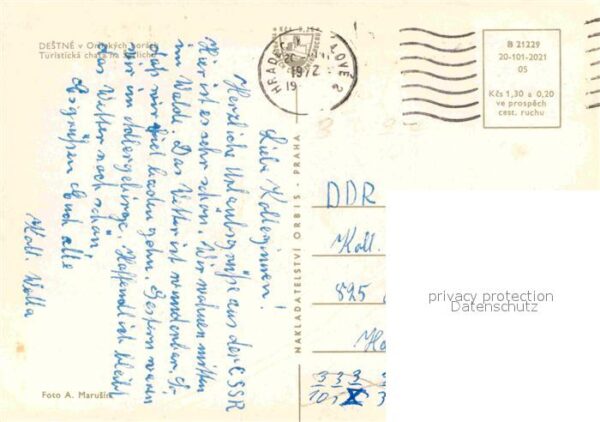 DEŠTNÉ v Orlických horách
Turistická chata na Šerlichu
HRADEC KRÁLOVÉ 2
1972
19
B 21229
20-101-2021
05
Kčs 1,30 a 0,20
ve prospěch
cest. ruchu
Liebe Kolleginnen!
Herzliche Urlaubsgrüße aus der ČSSR
Hier ist es sehr schön. Wir wohnen mitten
im Walde. Das Wetter ist wunderbar,
daß wir viel baden gehn. Gestern waren
wir im Adlergebirge. Hoffentlich bleibt
das Wetter noch schön
Es grüßen Euch alle
Koll. Walla
NAKLADATELSTVÍ ORBIS - PRAHA
DDR
Koll.
825
333
105
Foto A. Marušin
privacy protection
Datenschutz